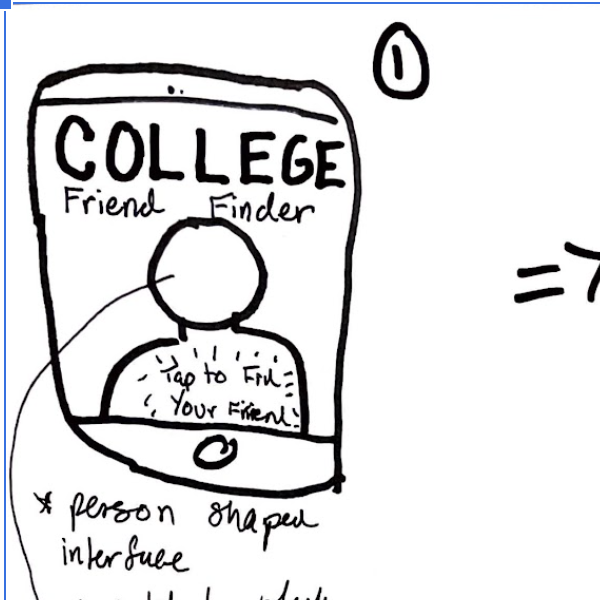 ①
COLLEGE
Friend Finder
Tap to Find
Your Friend
* person shaped
interface